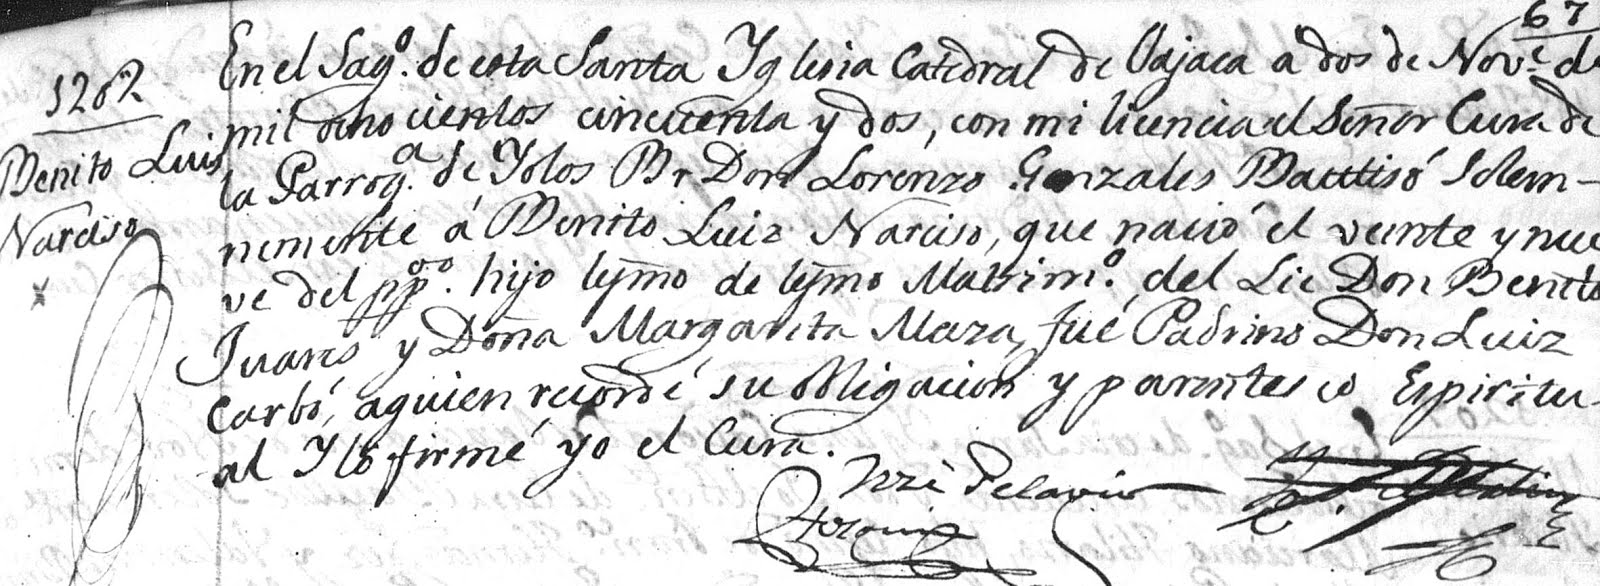 67
1202
Benito Luis
Narciso
En el Sag.o de esta Santa Yglesia Catedral de Oajaca a dos de Nov.e de
mil ochocientos cincuenta y dos, con mi licencia el Señor Cura de
la Parroq.a de Yolos Br Don Lorenzo Gonzales Bauttisó Solem-
nemente á Benito Luiz Narciso, que nació el veinte y nue
ve del pp.o hijo lejmo de lejmo Matrim.o del Lic Don Benito
Juares y Doña Margarita Maza, fué Padrino Don Luiz
Carbó, aquien recordé su obligacion y parentesco Espiritu-
al Y lo firmé yo el Cura.